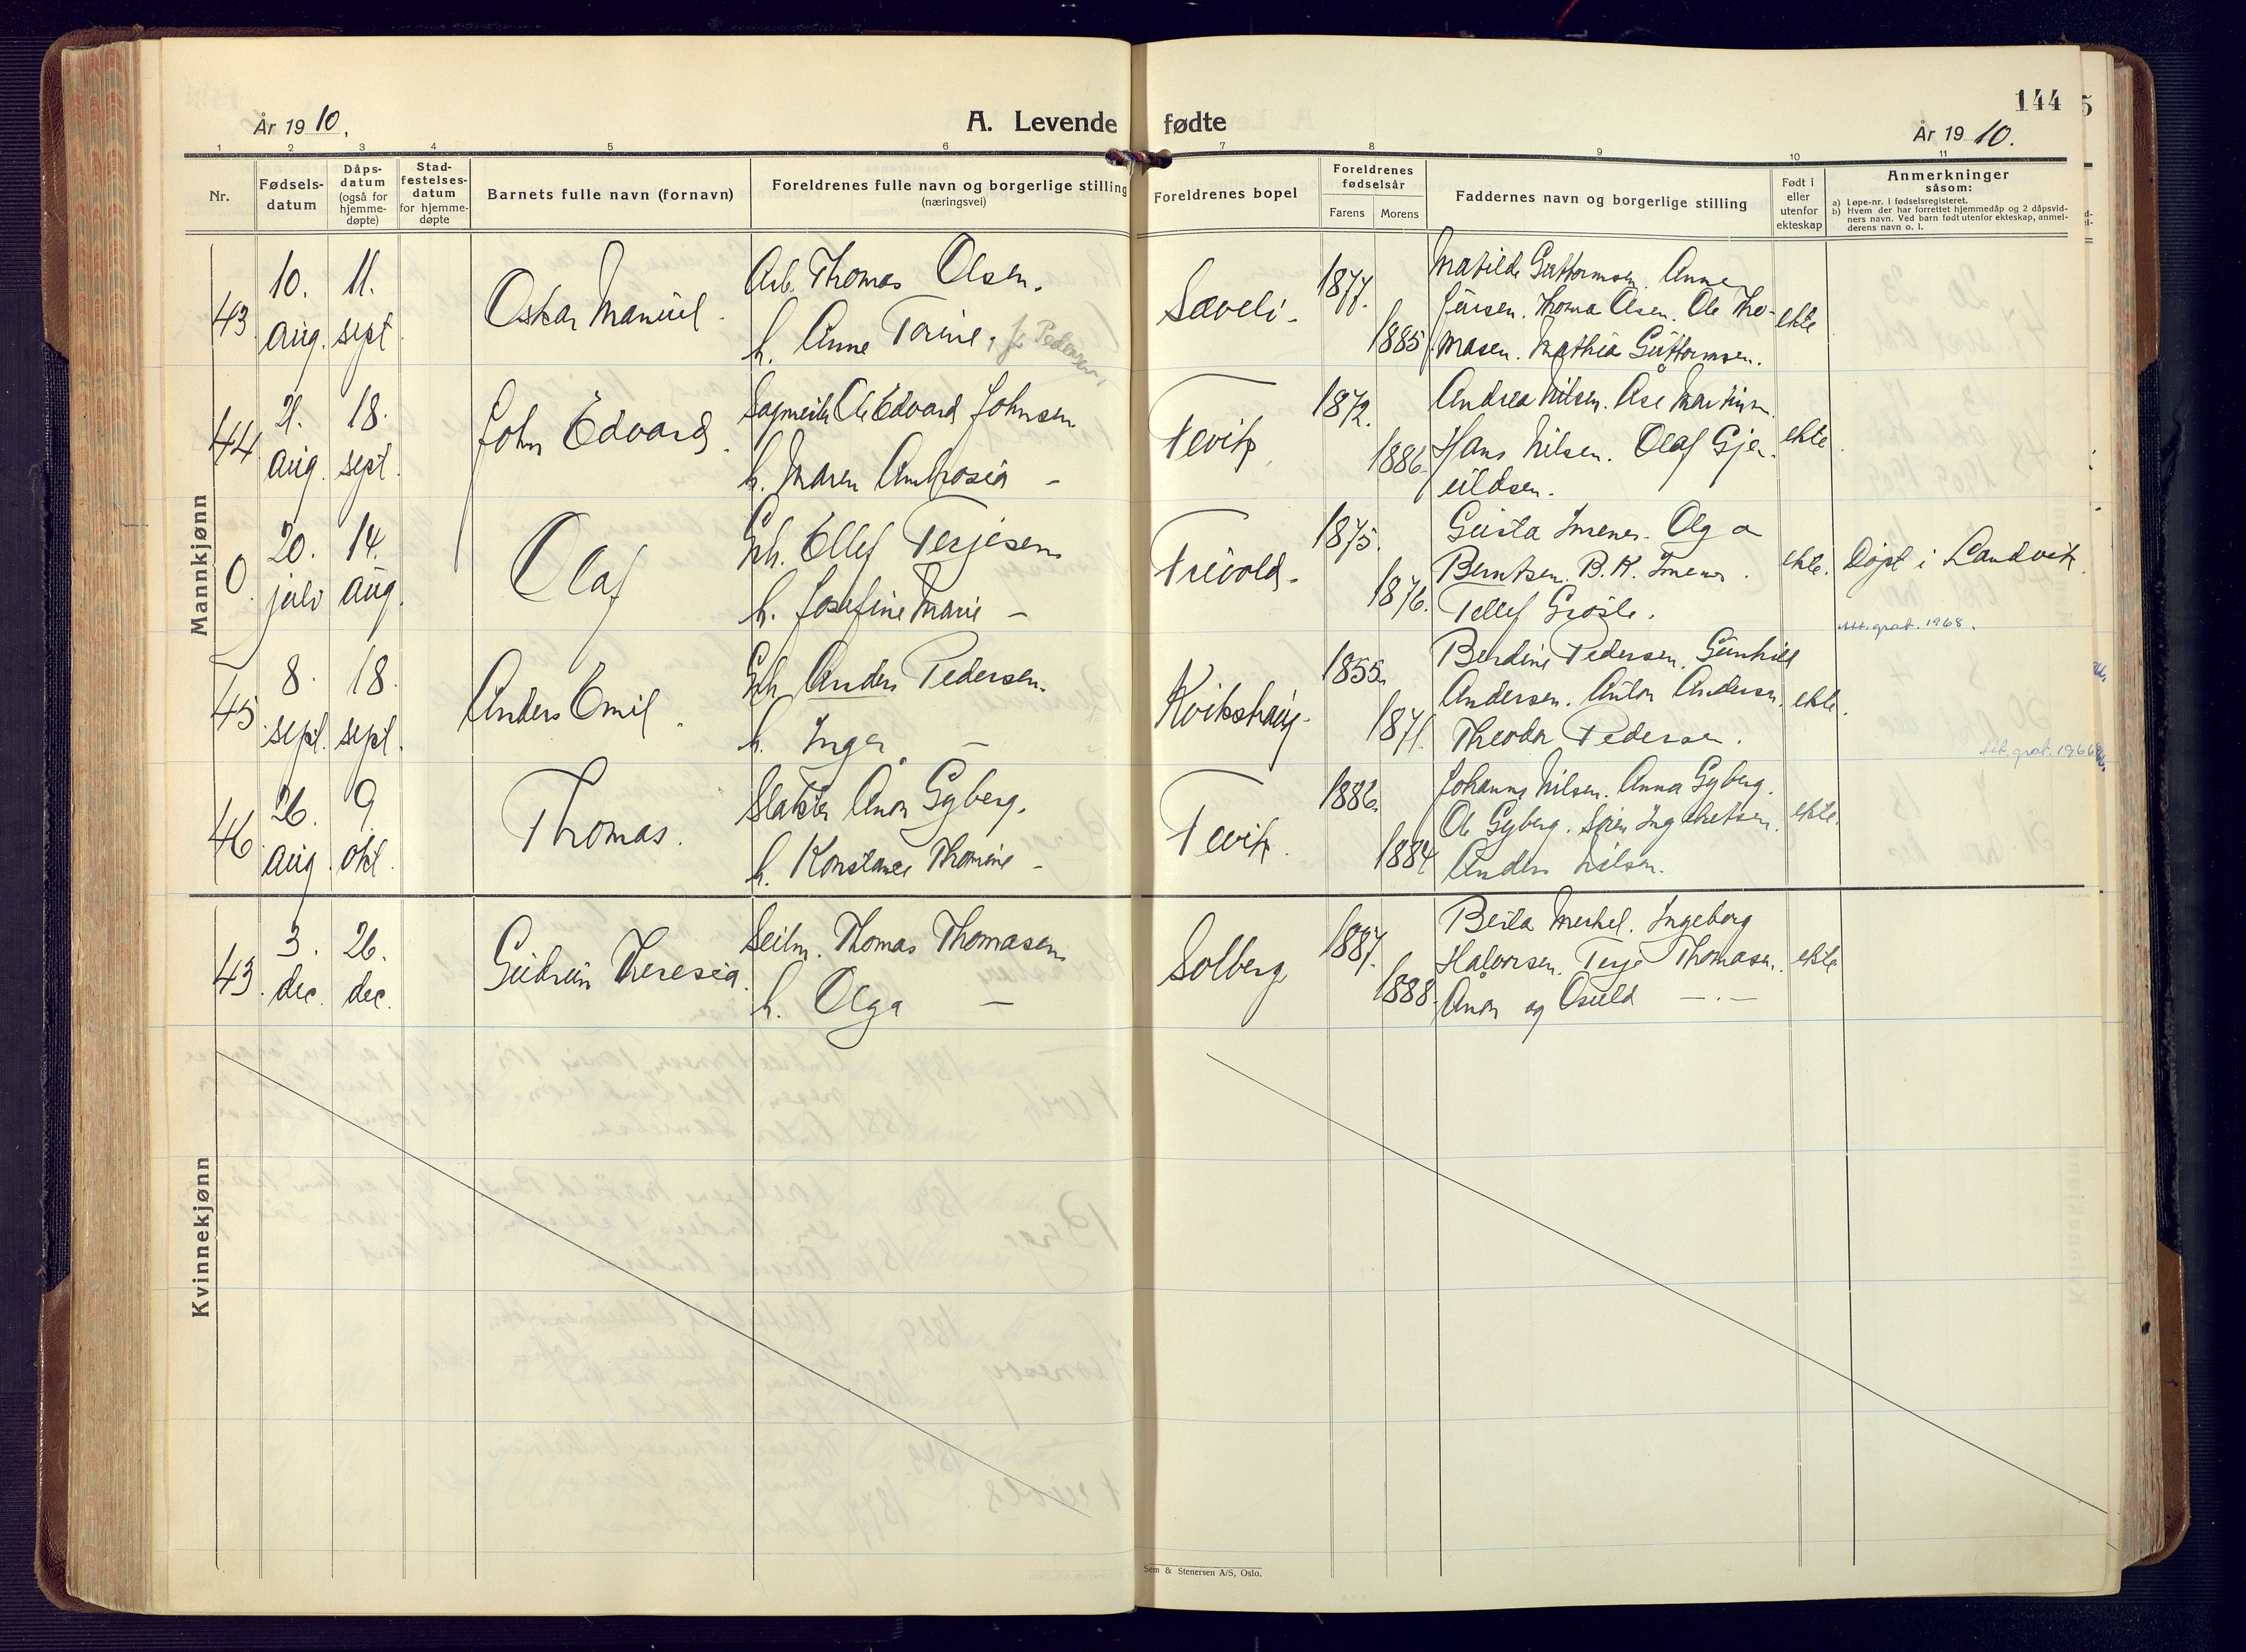 144
År 1910.
A. Levende fødte
År 1910.
1 2 3 4 5 6 7 8 9 10 11
Nr.
Fødsels-
datum
Dåps-
datum
(også for
hjemme-
døpte)
Stad-
festelses-
datum
for hjemme-
døpte
Barnets fulle navn (fornavn)
Foreldrenes fulle navn og borgerlige stilling
(næringsvei)
Foreldrenes bopel
Foreldrenes
fødselsår
Farens Morens
Faddernes navn og borgerlige stilling
Født i
eller
utenfor
ekteskap
Anmerkninger
såsom:
a) Løpe-nr. i fødselsregisteret.
b) Hvem der har forrettet hjemmedåp og 2 dåpsvid-
ners navn. Ved barn født utenfor ekteskap, anmel-
derens navn o. l.
Mannkjønn
43.
10.
aug.
11.
sept.
Oskar Manuel.
Arb. Thomas Olsen.
h. Anne Torine, f. Pedersen
Sæveli.
1877.
1885.
Matilde Guttormsen. Anne
Jensen. Thoma Olsen. Ole Tho-
masen. Mathia Guttormsen.
ekte
44.
21.
aug.
18.
sept.
John Edvard.
Ole Edvard Johnsen
h. Maren Ambrosia –
Fevik.
1872.
1886.
Andrea Nilsen. Åse
Hans Nilsen. Olaf Gje-
uldsen.
ekte.
0.
20.
juli
14.
aug.
Olaf
Gbr. Ellef Terjesen
h. Josefine Marie –
Frivold.
1875.
1876.
Gusta Imenes. Olga
Berntsen. B. K. Imenes.
Tellef Grosle.
ekte.
Døpt i Landvik.
Att. grat. 1968.
45.
8.
sept.
18.
sept.
Anders Emil.
Gbr. Anders Pedersen.
h. Inger –
Kvikshaug.
1855.
1871.
Berdine Pedersen. Gunhild
Andersen. Anton Andersen.
Theodor Pedersen.
ekte.
Att. grat. 1966
46.
26.
aug.
9
okt.
Thomas.
Slakter Anon Gyberg.
h. Konstance Thomine –
Fevik.
1886.
1884
Johanne Nilsen. Anna Gyberg.
Ole Gyberg. Søren Ingebretsen.
Anders Nilsen.
ekte.
Kvinnekjønn
43.
3.
dec.
26.
dec.
Gudrun Theresia.
Seilm. Thomas Thomasen
h. Olga –
Solberg
1887.
1888.
Berta Merkel. Ingeborg
Halvorsen. Terje Thomasen.
Anon og Osuld – . –
ekte
Sem & Stenersen A/S, Oslo.